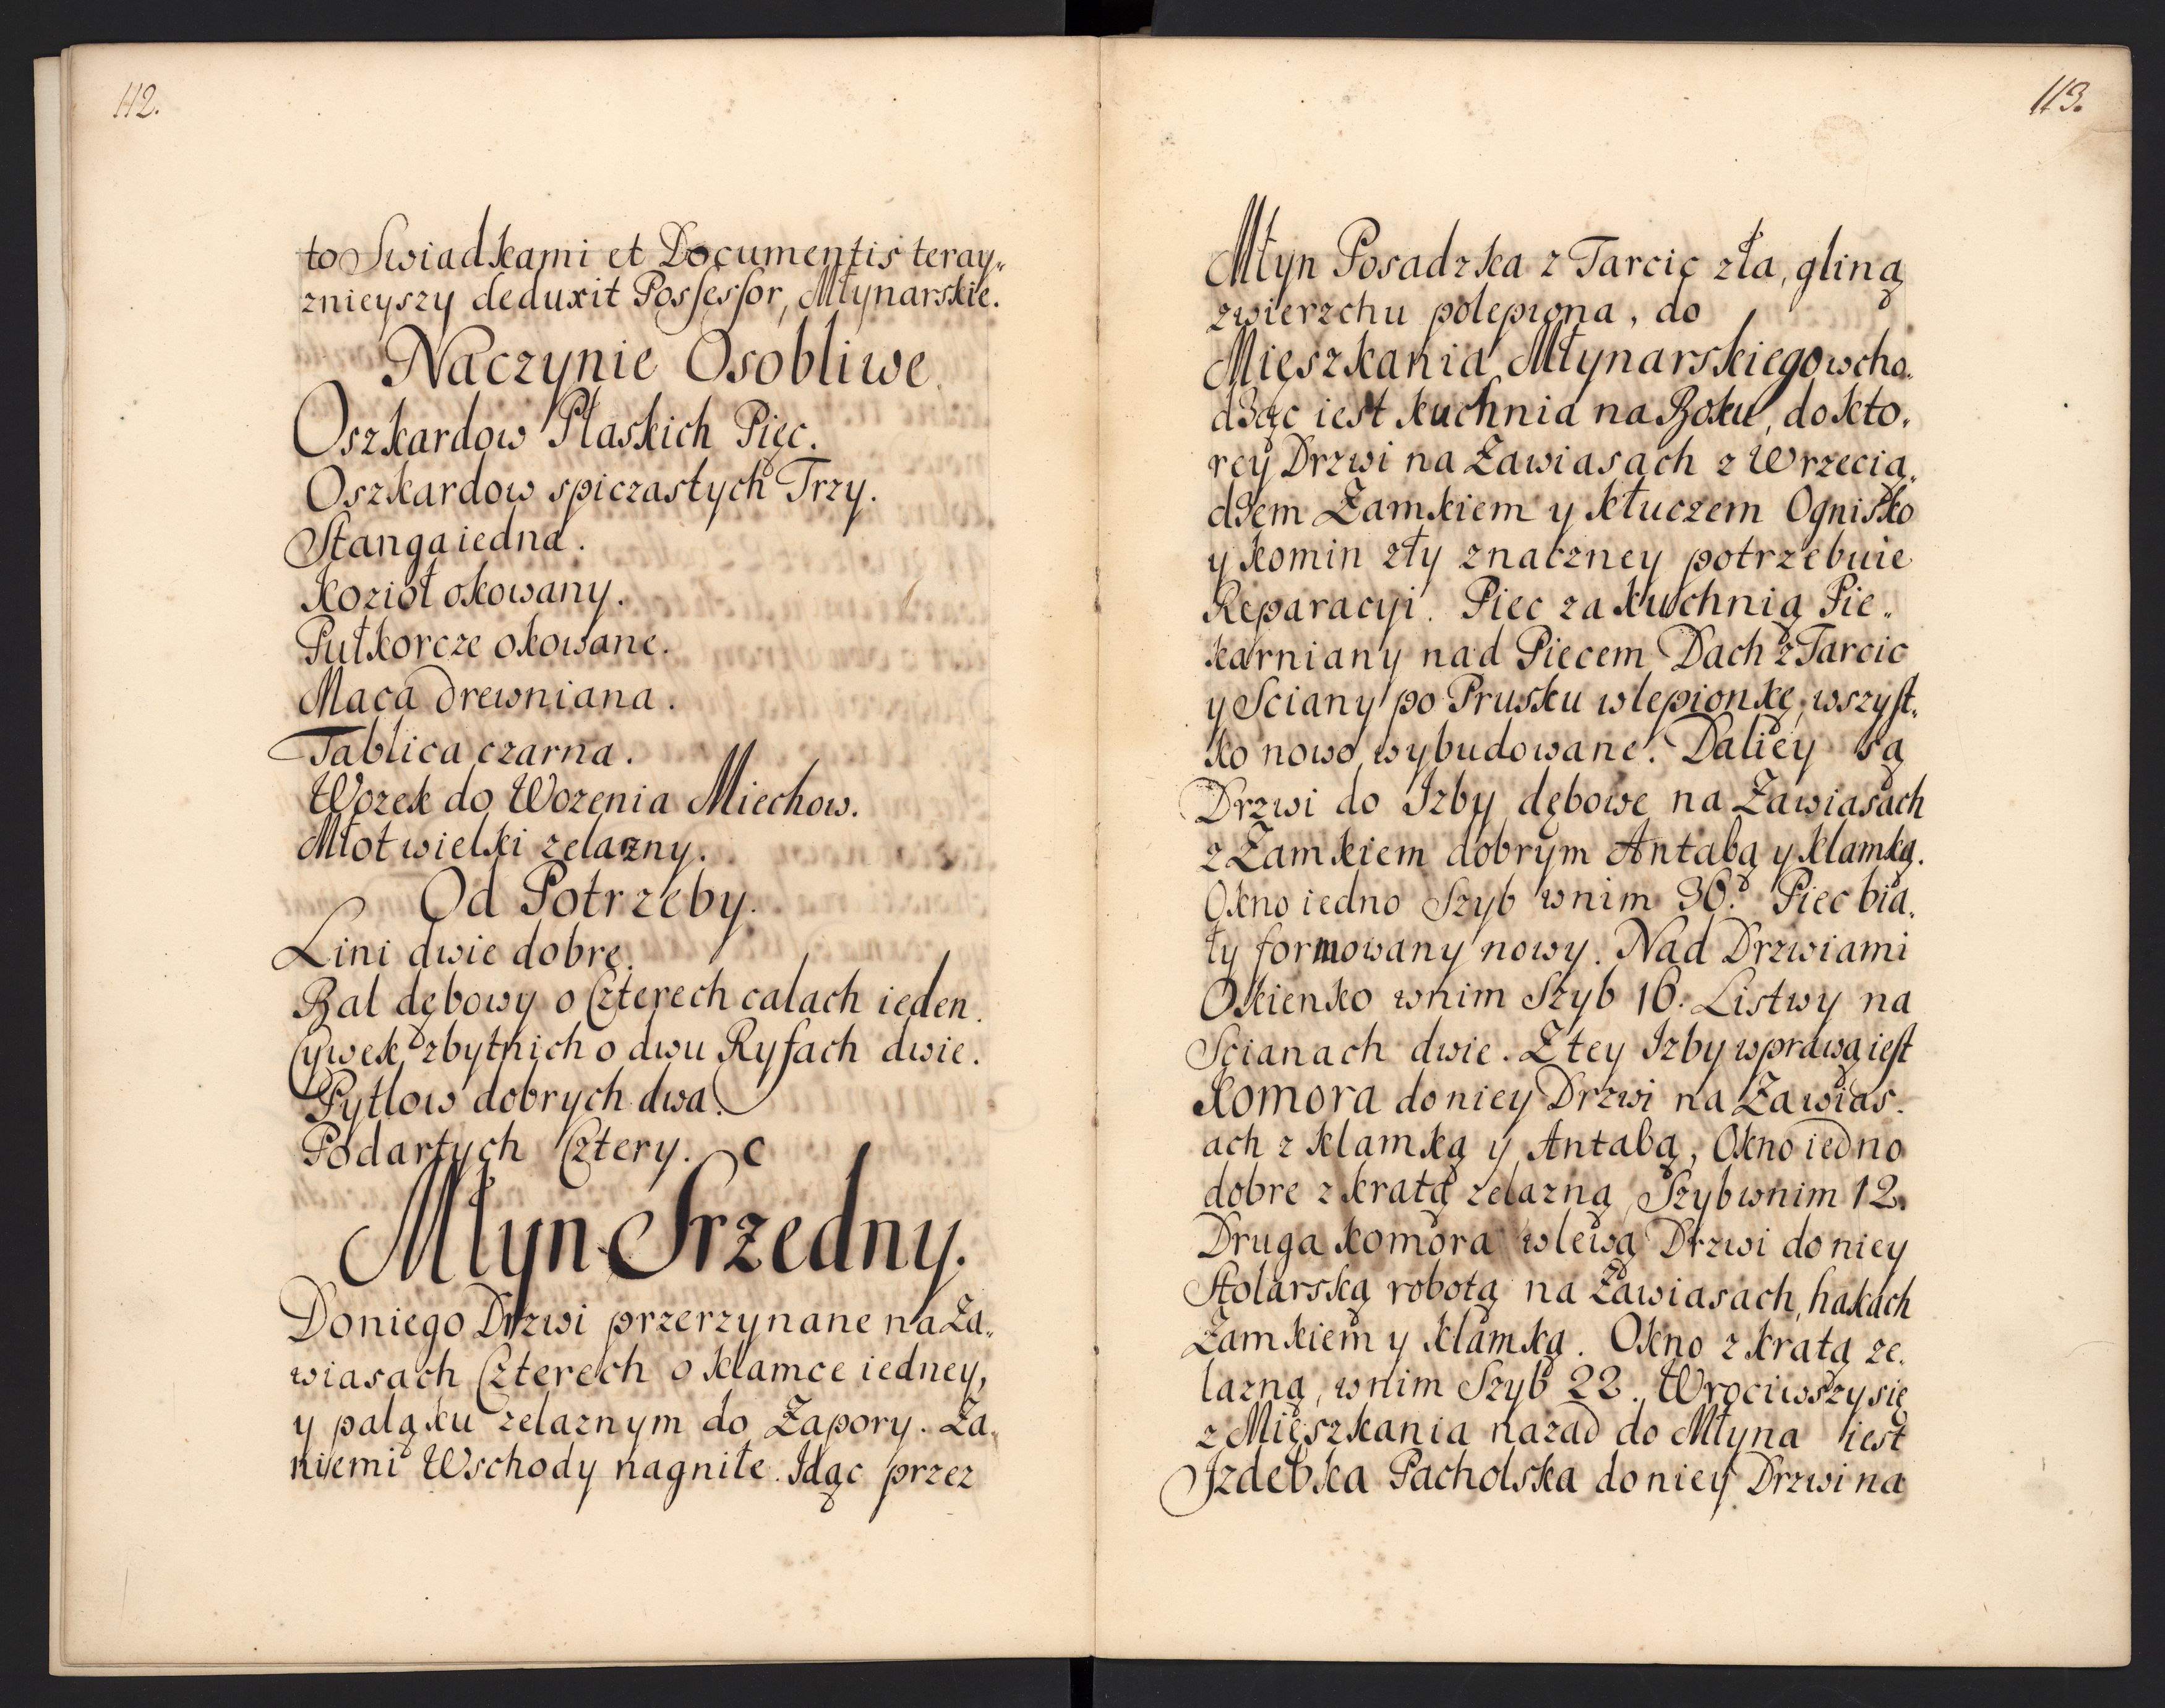 112.
to Swiadkami et Documentis teray„
znieyszy deduxit Possessor, Młynarskie.
Naczynie Osobliwe
Oszkardow Płaskich Pięc.
Oszkardow spiczastych Trzy.
Stanga iedna.
Kozioł okowany.
Pułkorcze okowane.
Maca drewniana.
Tablica czarna.
Wozek do Wozenia Miechow.
Młot wielki zelazny.
Od Potrzeby.
Lini dwie dobre.
Bal dębowy o Czterech calach ieden.
Cywek zbytnich o dwu Ryfach dwie.
Pytlow dobrych dwa.
Podartych Cztery. C
Młyn Srzedny.
Do niego Drzwi przerzynane na Za„
wiasach Czterech o klamce iedney,
y pałąku zelaznym do Zapory. Za„
niemi Wschody nagniłe. Idąc przez
113.
Młyn Posadzka z Tarcic zła, gliną
zwierzchu polepiona, do
Mieszkania Młynarskiego wcho„
dząc iest kuchnia na Boku, do kto„
rey Drzwi na Zawiasach z Wrzecią„
dzem Zamkiem y kłuczem Ognisko
y komin zły znaczney potrzebuie
Reparacyi. Piec za kuchnią Pie„
karniany nad Piecem Dach z Tarcic
y Sciany po Prusku w lepionkę, wszyst„
ko nowo wybudowane. Daliey są
Drzwi do Izby dębowe na Zawiasach
z Zamkiem dobrym Antabą y klamką.
Okno iedno Szyb w nim 36. Piec bia„
ły formowany nowy. Nad Drzwiami
Okienko w nim Szyb 16. Listwy na
Scianach dwie. Z tey Izby w prawą iest
Komora do niey Drzwi na Zawias„
ach z klamką y Antabą, Okno iedno
dobre z kratą zelazną, Szyb w nim 12.
Druga komora w lewą Drzwi do niey
Stolarską robotą na Zawiasach, hakach
Zamkiem y klamką. Okno z kratą ze„
lazną, w nim Szyb 22. Wrociwszy się
z Mieszkania nazad do Młyna iest
Izdebka Pacholska do niey Drzwi na